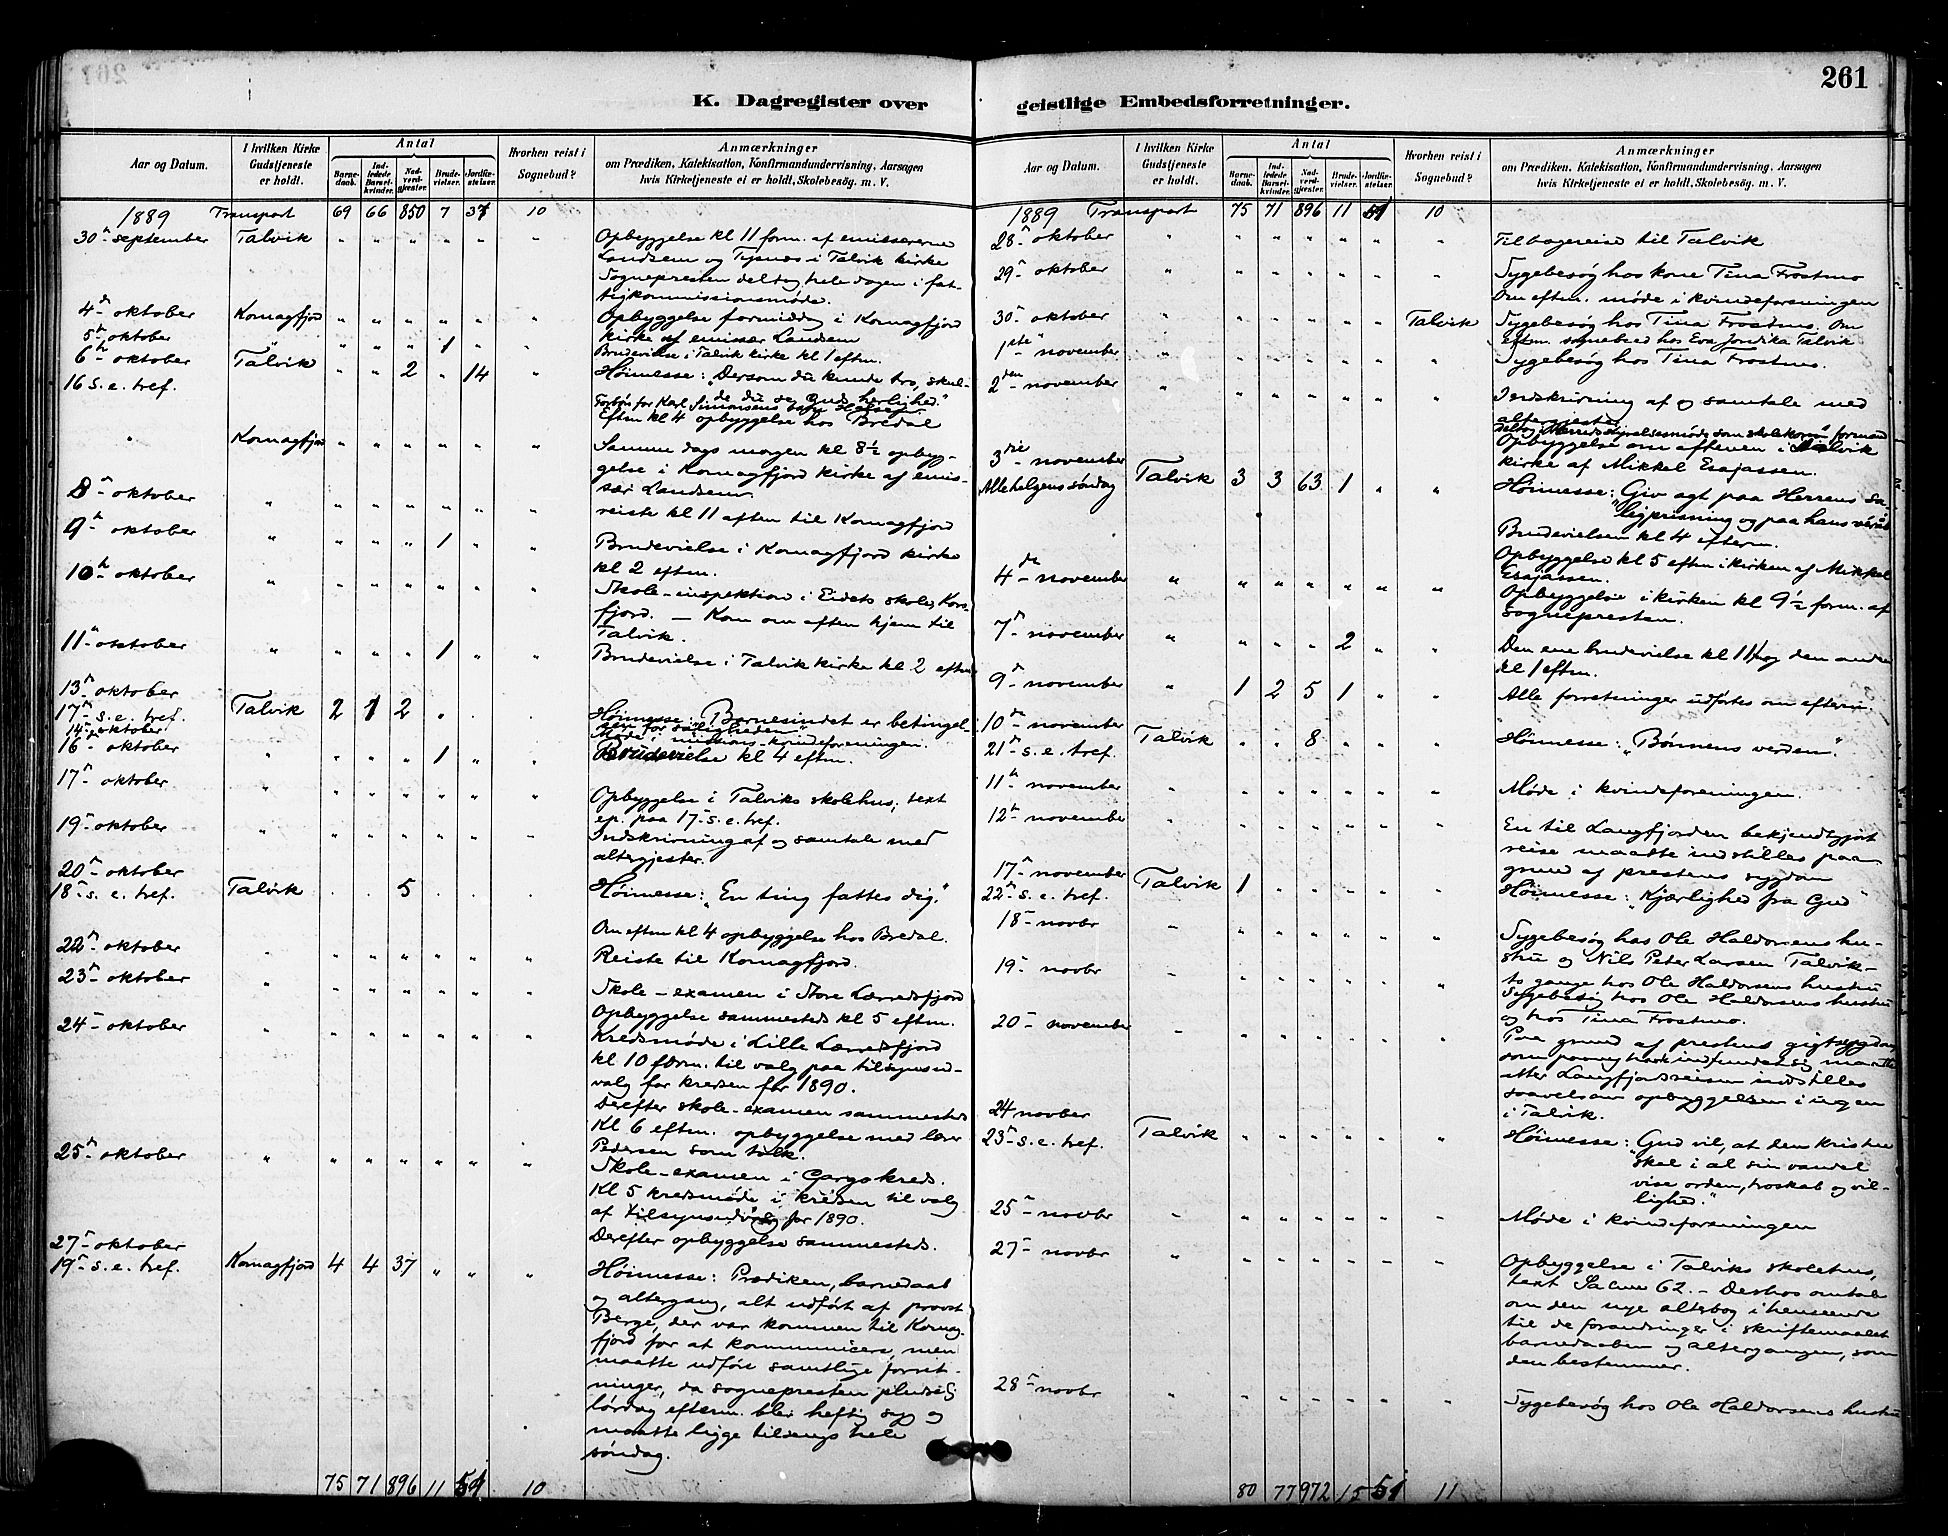 K. Dagregister over
Aar og Datum.
I hvilken Kirke Gudstjeneste er holdt.
Antal
Barnedaab.
Indledede Barselkvinder.
Nadverdgjester.
Brudevielser.
Jordfæstelser.
Hvorhen reist i Sognebud?
Anmærkninger
om Prædiken, Katekisation, Konfirmandundervisning, Aarsagen
hvis Kirketjeneste ei er holdt, Skolebesög. m. V.
1889 Transport 69 66 850 7 37 10
30 september Talvik " " " " " " Opbyggelse kl 11 form. af emissererne
Landsem og Tysnes i Talvik kirke
Sognepresten deltog hele dagen i fat-
tigkommissionsmøde.
4 oktober Komagfjord " " " " " " Opbyggelse formiddag i Komagfjord
kirke af emissær Landsem
5 oktober " " " " 1 " " Brudevielse i Talvik kirke kl 1 eftm.
6 oktober Talvik " " 2 " 14 " Høimesse: "Dersom du kunde tro, skul-
16 s. e. tref. de du se Guds herlighed."
Forbøn for Karl Simonsens
Eftm kl 4 opbyggelse hos Bredal
" Komagfjord " " " " " " Samme dags morgen kl 8½ opbyg-
gelse i Komagfjord kirke af emis-
sær Landsem
8 oktober " " " " " " " reiste kl 11 eften til Komagfjord
9 oktober " " " " 1 " " Brudevielse i Komagfjord kirke
kl 2 eftm.
10 oktober " " " " " " " Skole-inspektion i Eidets skole, Kors-
fjord. — Kom om aften hjem til
Talvik.
11 oktober " " " " 1 " " Brudevielse i Talvik kirke kl 2 eftm
13 oktober
17 s. e. tref. Talvik 2 1 2 " . . Høimesse: "Barnesindet er betingel-
sen for saligheden."
14 oktober Møde i missions-kvindeforeningen.
16 oktober " " " " 1 " " Brudevielse kl 4 eftm.
17 oktober " " " " " " " Opbyggelse i Talviks skolehus, text
ep. paa 17 s. e. tref.
19 oktober " " " " " " " Indskrivning af og samtale med
altergjester.
20 oktober
18 s. e. tref. Talvik . . 5 . . . Høimesse: "En ting fattes dig."
Om eftm kl 4 opbyggelse hos Bredal.
22 oktober " " " " " " " Reiste til Komagfjord.
23 oktober " " " " " " " Skole-examen i Store Lærredsfjord
Opbyggelse sammesteds kl 5 eftm.
24 oktober " " " " " " " Kredsmøde i Lille Lærredsfjord
kl 10 form. til valg paa tilsynsud-
valg for kredsen for 1890.
Derefter skole-examen sammesteds
Kl 6 eftm. opbyggelse med lærer
Pedersen som tolk.
25 oktober " " " " " " " Skole-examen i Gargo kreds.
Kl 5 kredsmøde i kredsen til valg
af tilsynsudvalg for 1890.
Derefter opbyggelse sammesteds.
27 oktober
19 s. e. tref. Komagfjord 4 4 37 " " " Høimesse: Prædiken, barnedaab
og altergang, alt udført af provst
Berge, der var kommen til Komag-
fjord for at kommunicere, men
maatte udføre samtlige forret-
ninger, da sognepresten pludselig
lørdag efterm. blev heftig syg og
maatte ligge tilsengs hele
søndag.
75 71 896 11 51 10
261
geistlige Embedsforretninger.
Aar og Datum.
I hvilken Kirke Gudstjeneste er holdt.
Antal
Barnedaab.
Indledede Barselkvinder.
Nadverdgjester.
Brudevielser.
Jordfæstelser.
Hvorhen reist i Sognebud?
Anmærkninger
om Prædiken, Katekisation, Konfirmandundervisning, Aarsagen
hvis Kirketjeneste ei er holdt, Skolebesög. m. V.
1889 Transport 75 71 896 11 51 10
28 oktober " " " " " " " Tilbagereise til Talvik
29 oktober " " " " " " " Sygebesøg hos kone Tina Frostmo
Om eftm. møde i kvindeforeningen
30 oktober " " " " " " Talvik Sygebesøg hos Tina Frostmo. Om
eftm. sognebud hos Eva Jordika Talvik
1ste november " " " " " " " Sygebesøg hos Tina Frostmo.
2den november " " " " " " " Indskrivning af og samtale med
altergjester
som skolekom. formand
Opbyggelse om aftenen i Talvik
kirke af Mikkel Esajassen.
3die november
Allehelgens søndag Talvik 3 3 63 1 " " Høimesse: "Giv agt paa Herrens sa-
ligprisning og paa hans
Brudevielsen kl 4 efterm.
Opbyggelse kl 5 eftm i kirken af Mikkel
Esajassen.
4 november " " " " " " " Opbyggelse i kirken kl 9½ form. af
sognepresten.
7 november " " " " 2 " " Den ene brudevielse kl 11 og den anden
kl 1 eftm.
9 november " 1 2 5 1 " " Alle forretninger udførtes om efterm.
10 november
21 s. e. tref. Talvik " " 8 " " " Høimesse: "Bønnens verden".
11 november " " " " " " " Møde i kvindeforeningen.
12 november " " " " " " " En til Langfjorden bekjendtgjort
reise maatte indstilles paa
grund af prestens sygdom
17 november
22 s. e. tref. Talvik 1 " " " " " Høimesse: "Kjærlighed fra Gud"
18 novbr " " " " " " " Sygebesøg hos Ole Haldorsens hu-
stru og Nils Peter Larsen Talvik-
to gange hos Ole Haldorsens hustru
19 novbr " " " " " " " Sygebesøg hos Ole Haldorsens hustru
og hos Tina Frostmo.
20 november " " " " " " " Paa grund af prestens gigtsygdom,
som paany havde indfundet sig, maatte
atter Langfjordreisen indstilles
saavelsom opbyggelsen i ugen
i Talvik.
24 novber
23 s. e. tref. Talvik " " " " " " Høimesse: "Gud vil, at den kristne
skal i al sin vandel
vise orden, troskab og vil-
lighed."
25 novbr " " " " " " " Møde i kvindeforeningen
27 novbr " " " " " " " Opbyggelse i Talviks skolehus,
text Salme 62. — Deshos omtale
om den nye alterbog i henseende
til de forandringer i skriftemaalet
barnedaaben og altergangen, som
den bestemmer.
28 novbr " " " " " " " Sygebesøg hos Ole Haldorsens hustru
80 77 972 15 51 11